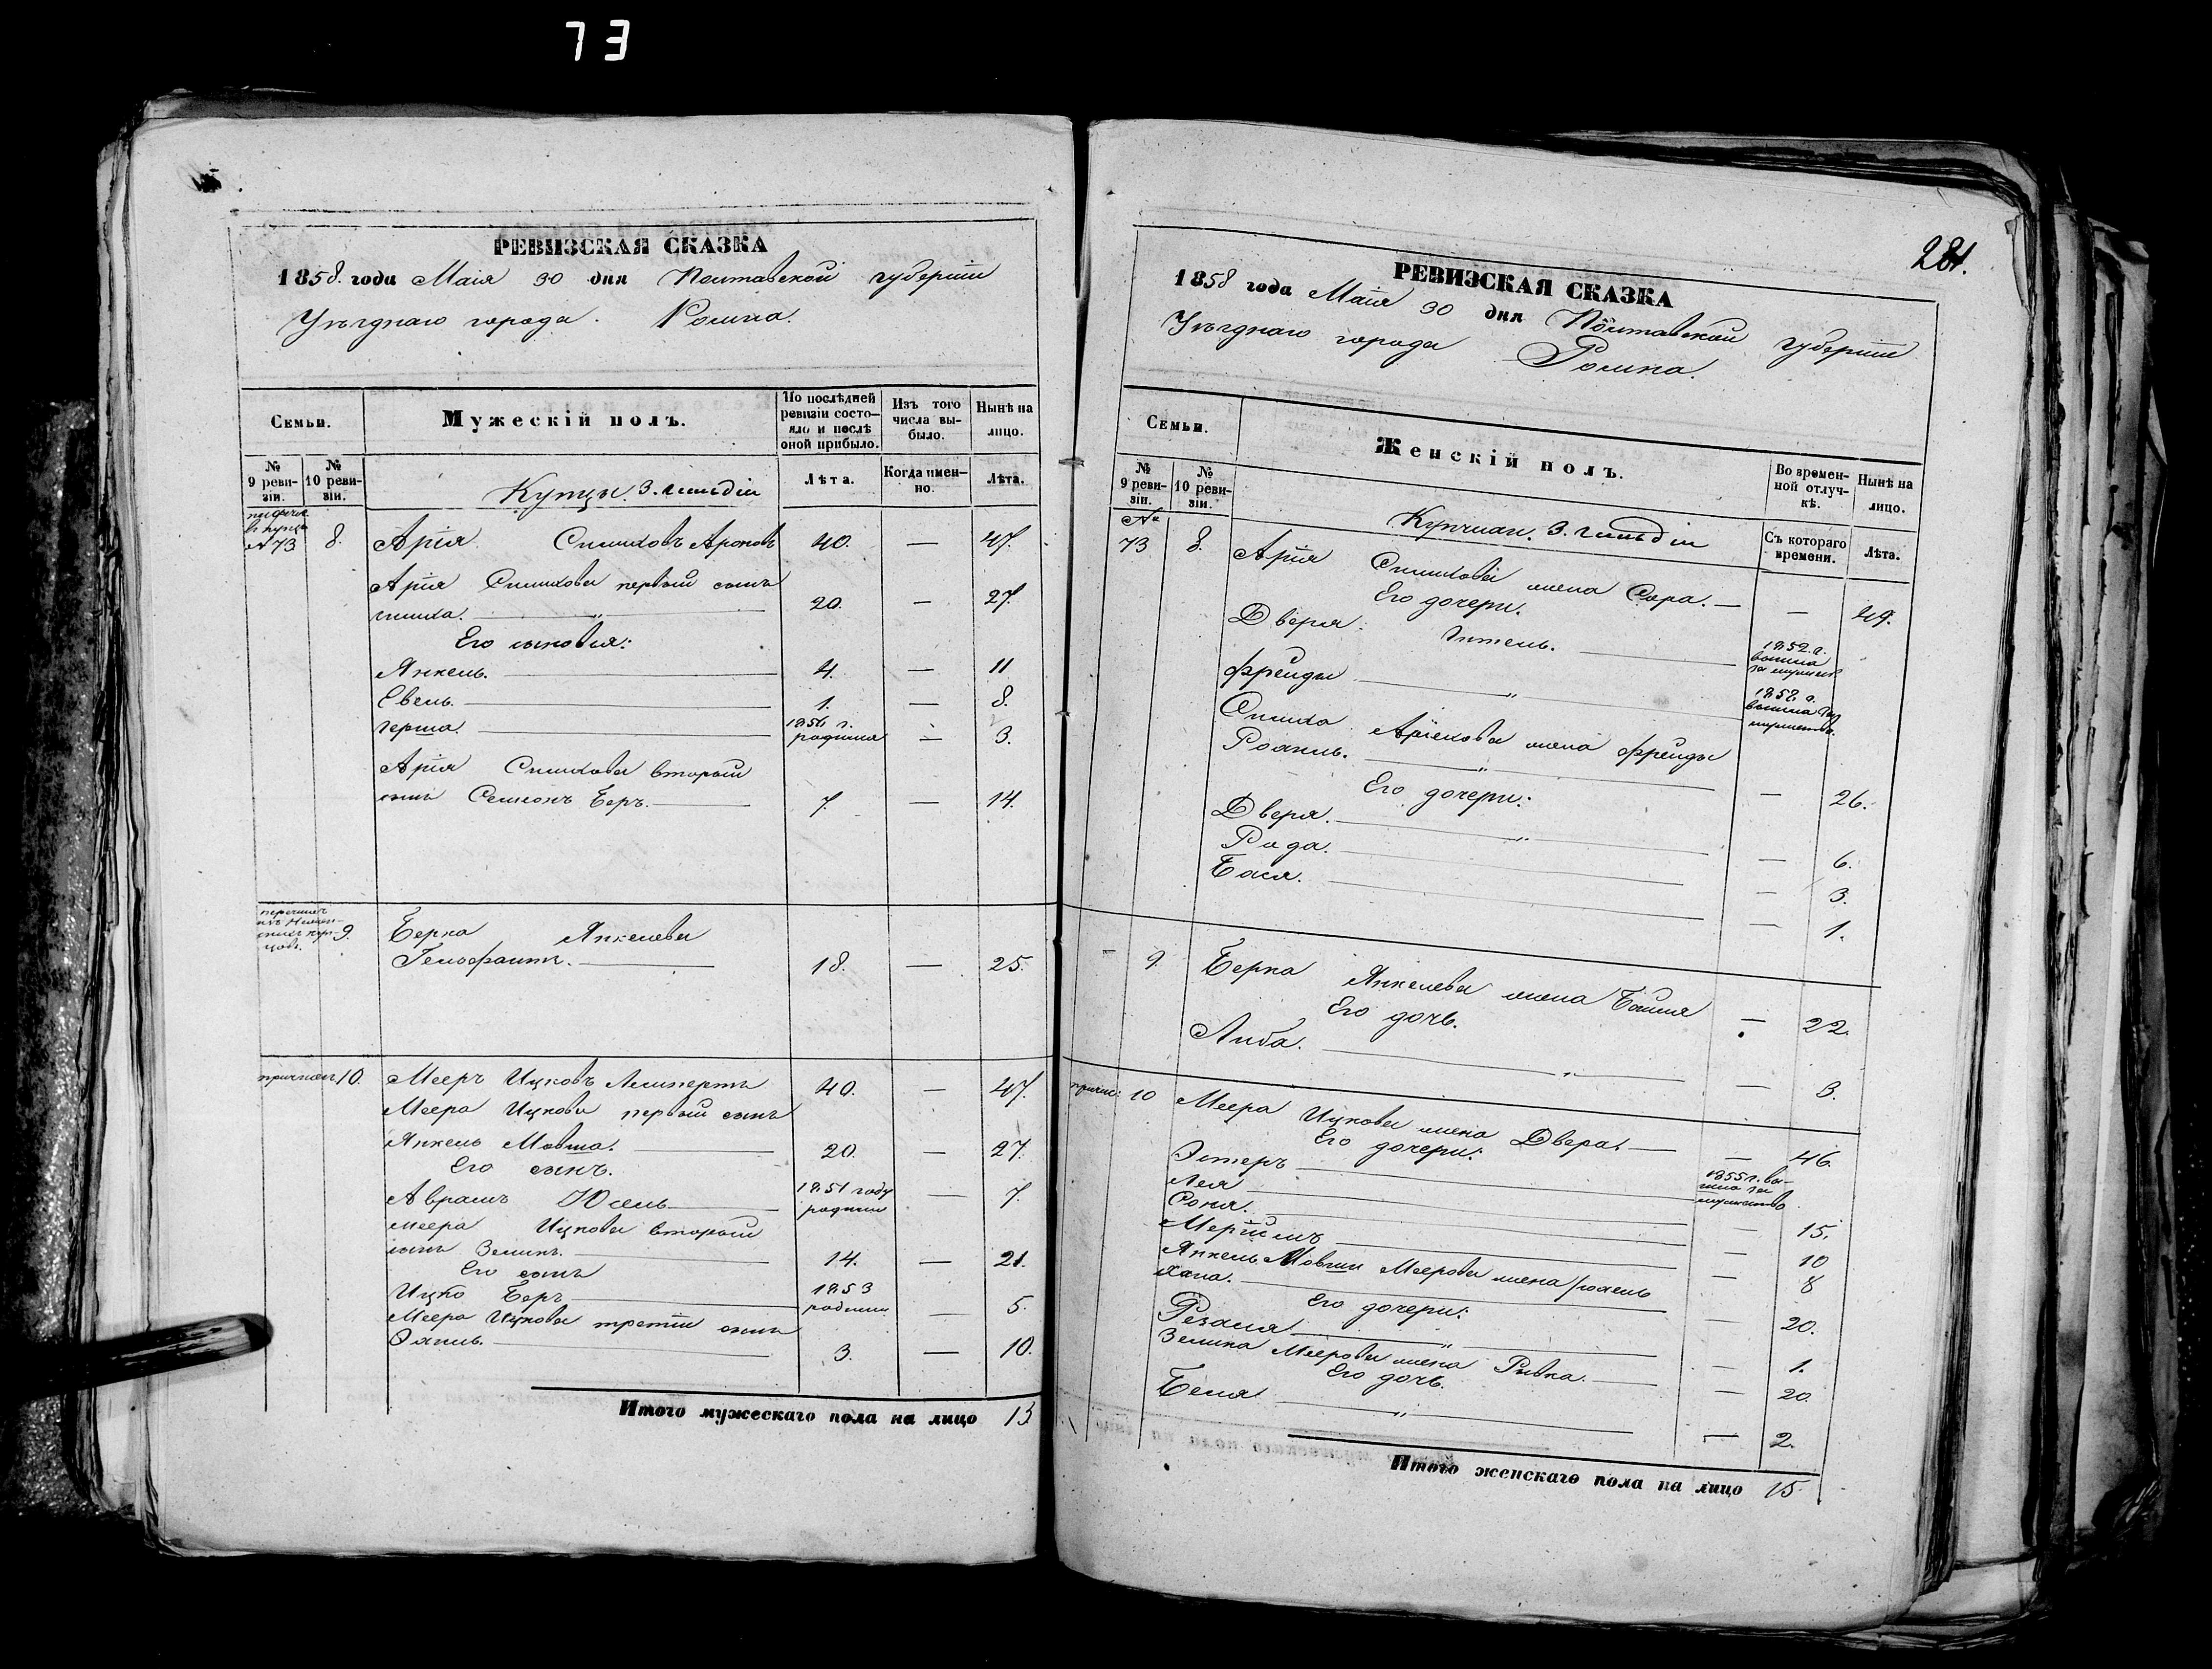 73
РЕВИЗСКАЯ СКАЗКА
1858 года Маія 30 дня Полтавской губерніи
Уѣзднаго города Ромна.
Семьи.
Мужескій полъ.
По послѣдней ревизіи состояло и послѣ оной прибыло.
Изъ того числа выбыло.
Нынѣ на лицо.
№ 9 ревизіи.
№ 10 ревизіи.
Купцы 3. гильдіи
Лѣта.
Когда именно.
Лѣта.
№ 73 8. Арія Симховъ Ароновъ 40. — 47.
Арія Симхова первый сынъ
20. — 27.
Его сыновья:
Янкель. 4. — 11
Евель. 1. — 8.
Герша. 1856 г. родился — 3.
Арія Симхова вторый
сынъ Семіонъ Беръ. 7. — 14.
9. Берка Янкелевъ
Гельфантъ. 18. — 25.
10. Мееръ Ицковъ 40. — 47.
Меера Ицкова первый сынъ
Янкель Мовша. 20. — 27.
Его сынъ.
Аврамъ Юсель 1851 году родился — 7.
Меера Ицкова вторый
сынъ Зеликъ. 14. — 21.
Его сынъ
Ицко Беръ 1853 родился 5.
Меера Ицкова третій сынъ
3. — 10.
Итого мужескаго пола на лицо 13
281.
РЕВИЗСКАЯ СКАЗКА
1858 года Маія 30 дня Полтавской губерніи
Уѣзднаго города Ромна.
Семьи.
Женскій полъ.
Во временной отлучкѣ.
Нынѣ на лицо.
№ 9 ревизіи.
№ 10 ревизіи.
3. гильдіи
Съ котораго времени.
Лѣта.
№ 73 8. Арія Симхова жена Сора. — — 49.
Его дочери.
Двера 1852. г. вышла
Фрейды " 1852 г. вышла
Симха Аріехова жена Фрейды
— 26.
Его дочери:
Двера. " — 6.
Рода. — 3.
Бася. — 1.
— 9. Берка Янкелева жена — 22.
Его дочь.
Либа. " — 3.
10 Меера Ицкова жена Двера. — — 46.
Его дочери:
Эстеръ 1855 г. вышла за
Лея — 15.
Соня. — 10
— 8
Янкель Мовши Меерова жена
Хана. — 20.
Его дочери:
" — 1.
Зелика Меерова жена Ривка. — 20.
Его дочь.
Беня " — 2.
Итого женскаго пола на лицо 15